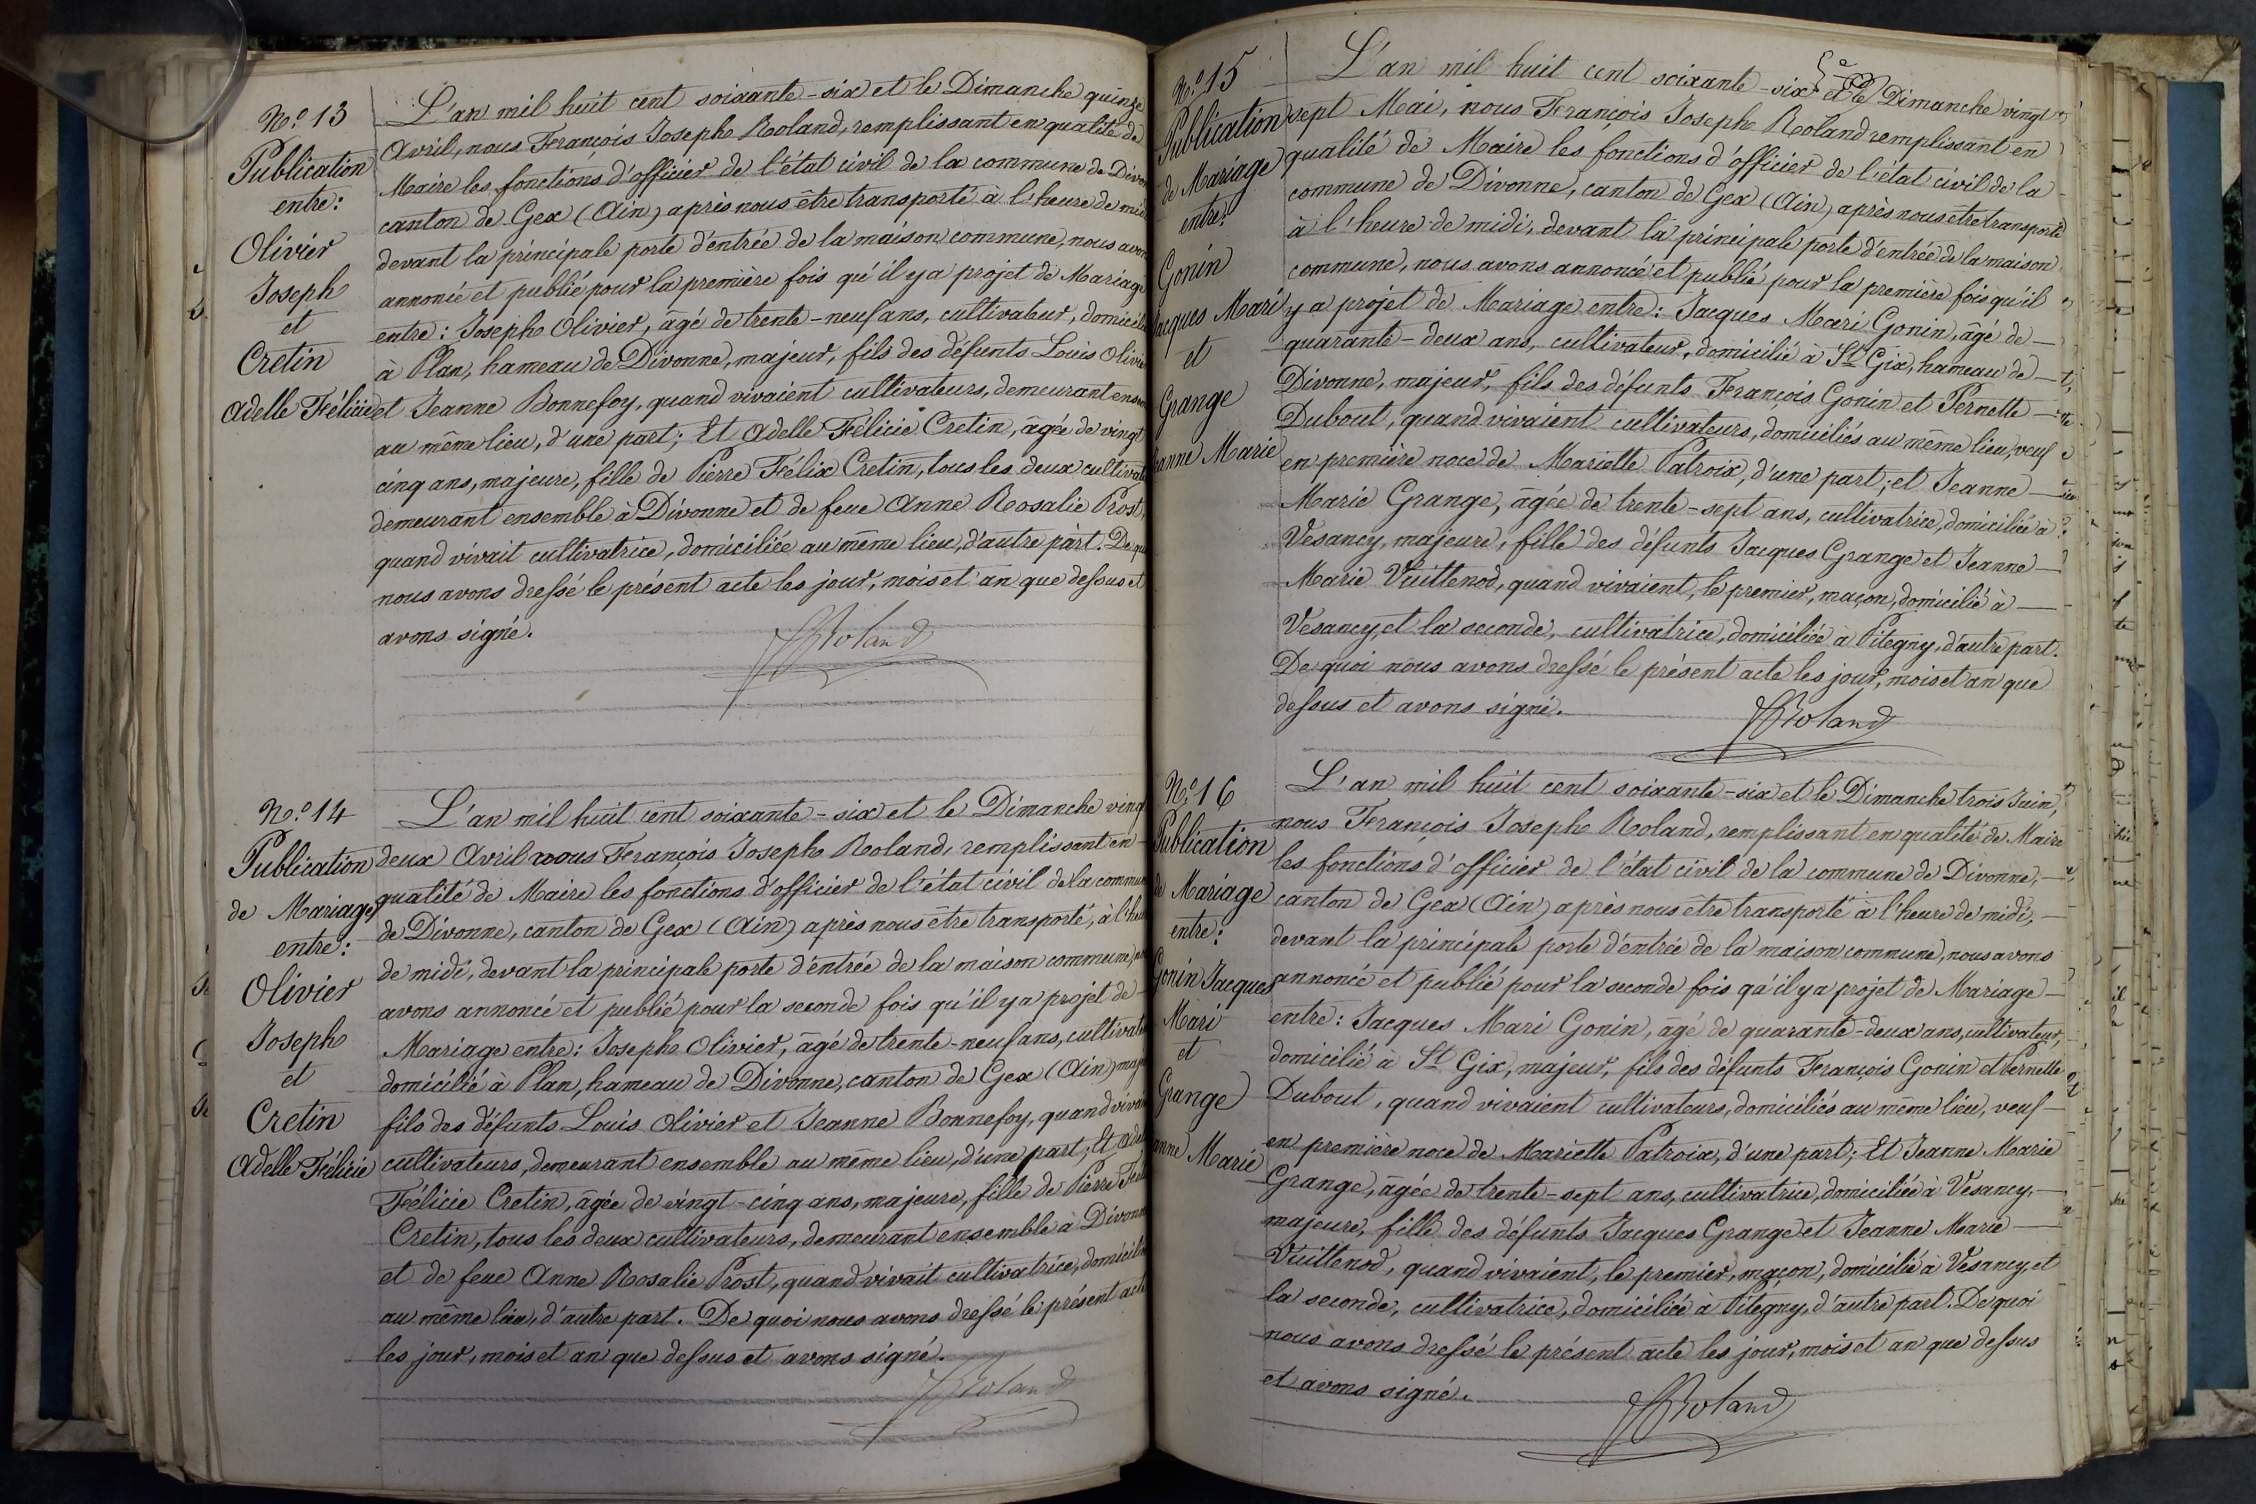 N.º 13
Publication
entre:
Olivier
Joseph
et
Cretin
Adelle Félicie
L'an mil huit cent soixante-six et le Dimanche quinze
Avril, nous François Joseph Roland, remplissant en qualité de
Maire les fonctions d'officier de l'état civil de la commune de Divon
canton de Gex (Ain) après nous être transporté à l'heure de mi
devant la principale porte d'entrée de la maison commune, nous avon
annoncé et publié pour la première fois qu'il y a projet de Mariage
entre: Joseph Olivier, âgé de trente-neuf ans, cultivateur, domicili
à Plan, hameau de Divonne, majeur, fils des défunts Louis Olivie
et Jeanne Bonnefoy, quand vivaient cultivateurs, demeurant ensem
au même lieu, d'une part; Et Adelle Félicie Cretin, âgée de vingt
cinq ans, majeure, fille de Pierre Félix Cretin, tous les deux cultivate
demeurant ensemble à Divonne et de feue Anne Rosalie Prost,
quand vivait cultivatrice, domiciliée au même lieu, d'autre part. De qu
nous avons dressé le présent acte les jour, mois et an que dessus et
avons signé.
Roland
N.º 14
Publication
de Mariage
entre:
Olivier
Joseph
et
Cretin
Adelle Félicie
L'an mil huit cent soixante-six et le Dimanche vingt
deux Avril nous François Joseph Roland, remplissant en
qualité de Maire les fonctions d'officier de l'état civil de la commun
de Divonne, canton de Gex (Ain) après nous être transporté, à l'heu
de midi, devant la principale porte d'entrée de la maison commune,
avons annoncé et publié pour la seconde fois qu'il y a projet de
Mariage entre: Joseph Olivier, âgé de trente-neuf ans, cultivate
domicilié à Plan, hameau de Divonne, canton de Gex (Ain) maje
fils des défunts Louis Olivier et Jeanne Bonnefoy, quand vivai
cultivateurs, demeurant ensemble au même lieu, d'une part; Et Adel
Félicie Cretin, âgée de vingt-cinq ans, majeure, fille de Pierre Féli
Cretin, tous les deux cultivateurs, demeurant ensemble à Divonn
et de feue Anne Rosalie Prost, quand vivait cultivatrice, domicili
au même lieu, d'autre part. De quoi nous avons dressé le présent acte
les jour, mois et an que dessus et avons signé.
Roland
N.º 15
Publication
de Mariage
entre:
Gonin
acques Mari
et
Grange
eanne Marie
L'an mil huit cent soixante-six et le Dimanche vingt
sept Mai, nous François Joseph Roland remplissant en
qualité de Maire les fonctions d'officier de l'état civil de la
commune de Divonne, canton de Gex (Ain) après nous être transporté
à l'heure de midi, devant la principale porte d'entrée de la maison
commune, nous avons annoncé et publié pour la première fois qu'il
y a projet de Mariage entre: Jacques Mari Gonin, âgé de
quarante-deux ans, cultivateur, domicilié à St Gix, hameau de
Divonne, majeur, fils des défunts François Gonin et Pernette
Dubout, quand vivaient cultivateurs, domiciliés au même lieu, veuf
en première noce de Mariette Patroix, d'une part; et Jeanne
Marie Grange, âgée de trente-sept ans, cultivatrice, domiciliée à
Vesancy, majeure, fille des défunts Jacques Grange et Jeanne
Marie Vuittenod, quand vivaient, le premier, maçon, domicilié à
Vesancy, et la seconde, cultivatrice, domiciliée à Pitegny, d'autre part.
De quoi nous avons dressé le présent acte les jour, mois et an que
dessus et avons signé.
Roland
N.º 16
Publication
de Mariage
entre:
Gonin Jacques
Mari
et
Grange
anne Marie
L'an mil huit cent soixante-six et le Dimanche trois Juin,
nous François Joseph Roland, remplissant en qualité de Maire
les fonctions d'officier de l'état civil de la commune de Divonne,
canton de Gex (Ain) après nous être transporté à l'heure de midi,
devant la principale porte d'entrée de la maison commune, nous avons
annoncé et publié pour la seconde fois qu'il y a projet de Mariage
entre: Jacques Mari Gonin, âgé de quarante-deux ans, cultivateur,
domicilié à St Gix, majeur, fils des défunts François Gonin et Pernette
Dubout, quand vivaient cultivateurs, domiciliés au même lieu, veuf
en première noce de Mariette Patroix, d'une part; Et Jeanne Marie
Grange, âgée de trente-sept ans, cultivatrice, domiciliée à Vesancy,
majeure, fille des défunts Jacques Grange et Jeanne Marie
Vuittenod, quand vivaient, le premier, maçon, domicilié à Vesancy, et
la seconde, cultivatrice, domiciliée à Pitegny, d'autre part. De quoi
nous avons dressé le présent acte les jour, mois et an que dessus
et avons signé.
Roland